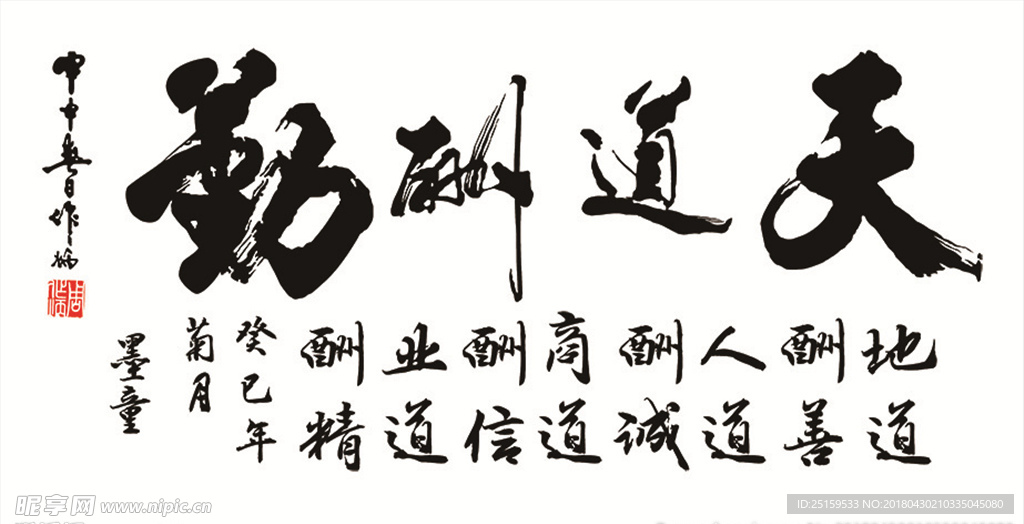 天道酬勤
地道酬善
人道酬诚
商道酬信
业道酬精
癸巳年
菊月
墨童
昵享网 www.nipic.cn
ID:25159533 NO:20180430210335045080